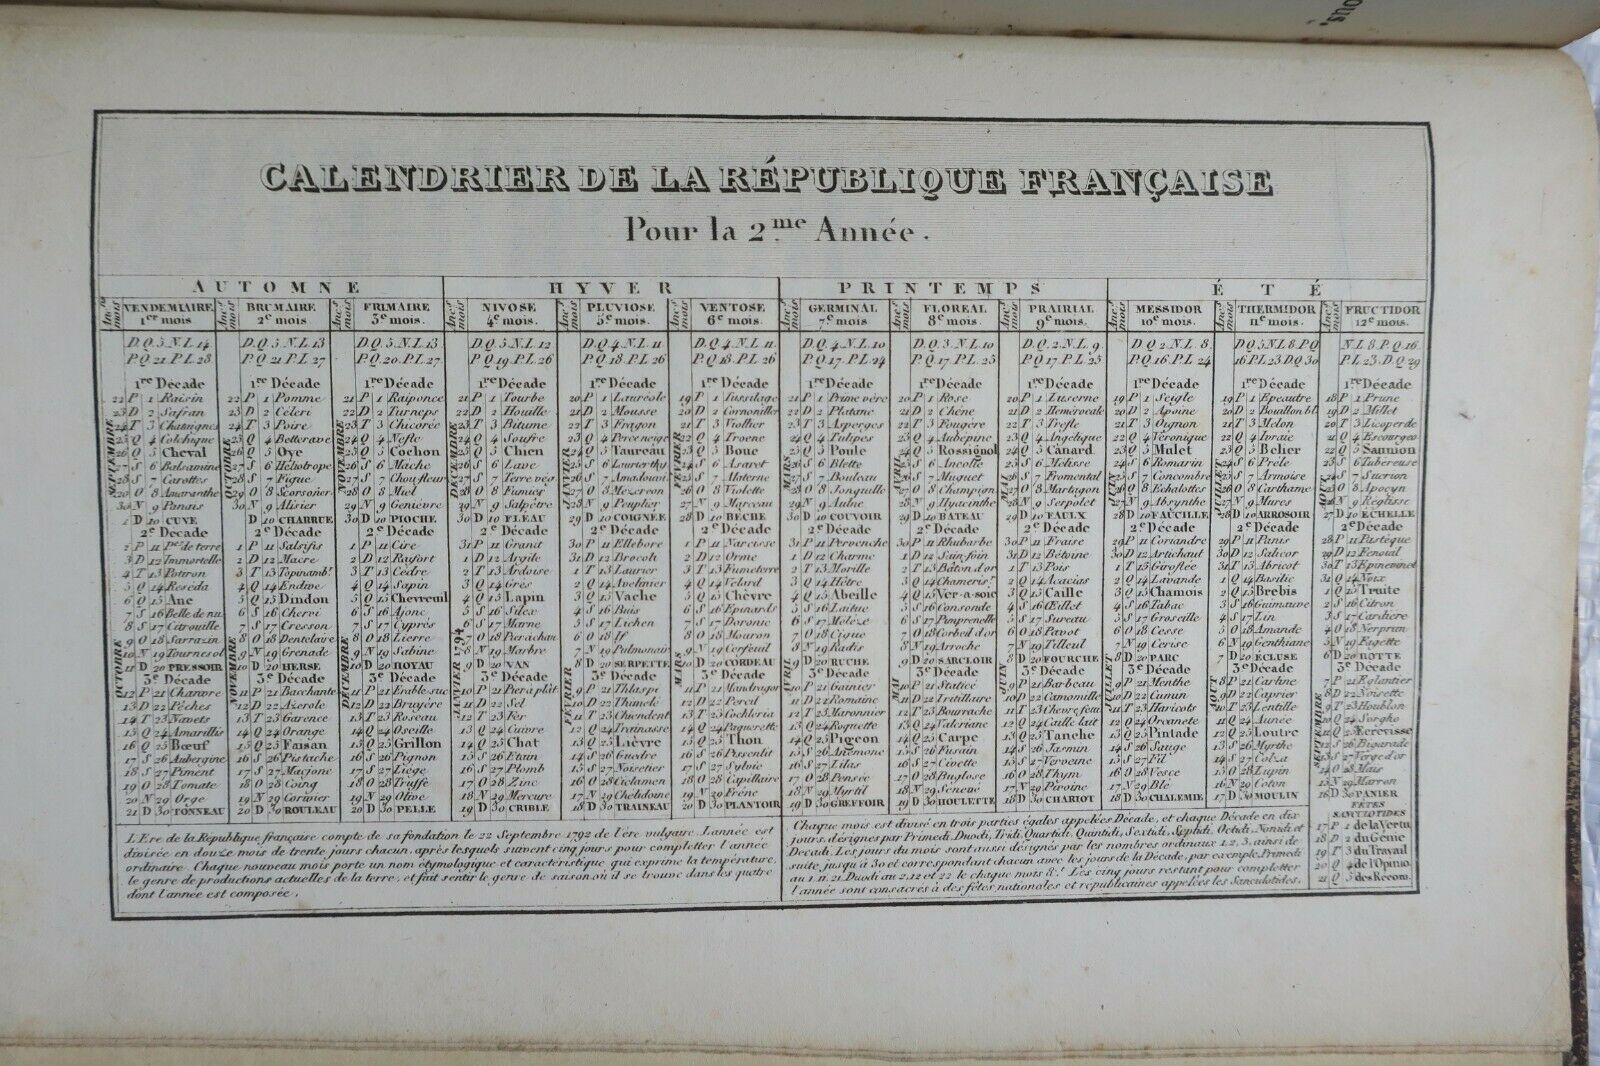 ous.
CALENDRIER DE LA RÉPUBLIQUE FRANÇAISE
Pour la 2.me Année.
AUTOMNE
HYVER
PRINTEMPS
ÉTÉ
Ancs mois
VENDEMIAIRE
1er mois
D.Q. 5 N.L 14
P.Q. 21 P.L. 28
1re Décade
SEPTEMBRE
22 P 1 Raisin
23 D 2 Safran
24 T 3 Chataignes
25 Q 4 Colchique
26 Q 5 Cheval
27 S 6 Balsamine
28 S 7 Carottes
29 O 8 Amaranthe
30 N 9 Panais
1 D 10 CUVE
2e Décade
OCTOBRE
2 P 11 Pme de terre
3 D 12 Immortelle
4 T 13 Potiron
5 Q 14 Reséda
6 Q 15 Ane
7 S 16 Belle de nu
8 S 17 Citrouille
9 O 18 Sarrazin
10 N 19 Tournesol
11 D 20 PRESSOIR
3e Décade
12 P 21 Chanvre
13 D 22 Pêches
14 T 23 Navets
15 Q 24 Amarillis
16 Q 25 Bœuf
17 S 26 Aubergine
18 S 27 Piment
19 O 28 Tomate
20 N 29 Orge
21 D 30 TONNEAU
Ancs mois
BRUMAIRE
2e mois.
D.Q. 5 N.L 13
P.Q 21 P.L. 27
1re Décade
OCTOBRE
22 P 1 Pomme
23 D 2 Céleri
24 T 3 Poire
25 Q 4 Betterave
26 Q 5 Oye
27 S 6 Héliotrope
28 S 7 Figue
29 O 8 Scorsoner
30 N 9 Alisier
D 10 CHARRUE
2e Décade
NOVEMBRE
1 P 11 Salsifis
2 D 12 Macre
3 T 13 Topinamb.r
4 Q 14 Endive
5 Q 15 Dindon
6 S 16 Chervi
7 S 17 Cresson
8 O 18 Dentelaire
9 N 19 Grenade
10 D 20 HERSE
3e Décade
11 P 21 Bacchante
12 D 22 Azerole
13 T 23 Garence
14 Q 24 Orange
15 Q 25 Faisan
16 S 26 Pistache
17 S 27 Macjonc
18 O 28 Coing
19 N 29 Cormier
20 D 30 ROULEAU
Ancs mois
FRIMAIRE
3e mois.
D.Q. 5. N.L 13
P.Q. 20. P.L. 27
1re Décade
NOVEMBRE
21 P 1 Raiponce
22 D 2 Turneps
23 T 3 Chicorée
24 Q 4 Nefle
25 Q 5 Cochon
26 S 6 Mache
27 S 7 Choufleur
28 O 8 Miel
29 N 9 Genièvre
30 D 10 PIOCHE
2e Décade
DÉCEMBRE
1 P 11 Cire
2 D 12 Raifort
3 T 13 Cèdre
4 Q 14 Sapin
5 Q 15 Chevreuil
6 S 16 Ajonc
7 S 17 Cyprès
8 O 18 Lierre
9 N 19 Sabine
10 D 20 HOYAU
3e Décade
11 P 21 Erable suc
12 D 22 Bruyère
13 T 23 Roseau
14 Q 24 Oseille
15 Q 25 Grillon
16 S 26 Pignon
17 S 27 Liège
18 O 28 Truffe
19 N 29 Olive
20 D 30 PELLE
Ancs mois
NIVOSE
4e mois.
D.Q. 5 N.L 12
P.Q 19 P.L 26
1re Décade
DÉCEMBRE
21 P 1 Tourbe
22 D 2 Houille
23 T 3 Bitume
24 Q 4 Soufre
25 Q 5 Chien
26 S 6 Lave
27 S 7 Terre vég
28 O 8 Fumier
29 N 9 Salpêtre
30 D 10 FLÉAU
2e Décade
JANVIER 1794
31 P 11 Granit
1 D 12 Argile
2 T 13 Ardoise
3 Q 14 Grès
4 Q 15 Lapin
5 S 16 Silex
6 S 17 Marne
7 O 18 Pierácháu
8 N 19 Marbre
9 D 20 VAN
3e Décade
10 P 21 Pierápât
11 D 22 Sel
12 T 23 Fer
13 Q 24 Cuivre
14 Q 25 Chat
15 S 26 Etain
16 S 27 Plomb
17 O 28 Zinc
18 N 29 Mercure
19 D 30 CRIBLE
Ancs mois
PLUVIOSE
5e mois.
D.Q. 4. N.L. 11
P.Q. 18. P.L. 26
1re Décade
JANVIER
20 P 1 Lauréole
21 D 2 Mousse
22 T 3 Fragon
23 Q 4 Perceneige
24 Q 5 Taureau
25 S 6 Laurierthy
26 S 7 Amadouvi
27 O 8 Mézeréon
28 N 9 Peuplier
29 D 10 COIGNÉE
2e Décade
30 P 11 Ellébore
31 D 12 Brocoli
FÉVRIER
1 T 13 Laurier
2 Q 14 Avelinier
3 Q 15 Vache
4 S 16 Buis
5 S 17 Lichen
6 O 18 If
7 N 19 Pulmonair
8 D 20 SERPETTE
3e Décade
9 P 21 Thlaspi
10 D 22 Thimelé
11 T 23 Chiendent
12 Q 24 Trainasse
13 Q 25 Lièvre
14 S 26 Guedre
15 S 27 Noisetier
16 O 28 Ciclamen
17 N 29 Chelidoine
18 D 30 TRAINEAU
Ancs mois
VENTOSE
6e mois.
D.Q. 4. N.L. 11.
P.Q. 18. P.L 26
1re Décade
FÉVRIER
19 P 1 Tussilage
20 D 2 Cornouiller
21 T 3 Violier
22 Q 4 Troene
23 Q 5 Bouc
24 S 6 Asaret
25 S 7 Alaterne
26 O 8 Violette
27 N 9 Marceau
28 D 10 BÈCHE
2e Décade
MARS
1 P 11 Narcisse
2 D 12 Orme
3 T 13 Fumeterre
4 Q 14 Vélard
5 Q 15 Chèvre
6 S 16 Epinards
7 S 17 Doronic
8 O 18 Mouron
9 N 19 Cerfeuil
10 D 20 CORDEAU
3e Décade
11 P 21 Mandragor
12 D 22 Percil
13 T 23 Cochleria
14 Q 24 Paquerette
15 Q 25 Thon
16 S 26 Pissenlit
17 S 27 Sylvie
18 O 28 Capillaire
19 N 29 Frêne
20 D 30 PLANTOIR
Ancs mois
GERMINAL
7e mois.
D.Q. 4. N.L. 10
P.Q. 17. P.L. 24
1re Décade
MARS
21 P 1 Prime vère
22 D 2 Platane
23 T 3 Asperges
24 Q 4 Tulipes
25 Q 5 Poule
26 S 6 Blette
27 S 7 Bouleau
28 O 8 Jonquille
29 N 9 Aulne
30 D 10 COUVOIR
2e Décade
31 P 11 Pervenche
AVRIL
1 D 12 Charme
2 T 13 Morille
3 Q 14 Hêtre
4 Q 15 Abeille
5 S 16 Laitue
6 S 17 Mélèze
7 O 18 Cigue
8 N 19 Radis
9 D 20 RUCHE
3e Décade
10 P 21 Gainier
11 D 22 Romaine
12 T 23 Maronnier
13 Q 24 Roquette
14 Q 25 Pigeon
15 S 26 Anémone
16 S 27 Lilas
17 O 28 Pensée
18 N 29 Myrtil
19 D 30 GREFFOIR
Ancs mois
FLOREAL
8e mois.
D.Q. 3. N.L. 10
P.Q. 17 P.L. 25
1re Décade
AVRIL
20 P 1 Rose
21 D 2 Chêne
22 T 3 Fougère
23 Q 4 Aubepine
24 Q 5 Rossignol
25 S 6 Ancolie
26 S 7 Muguet
27 O 8 Champion
28 N 9 Hyacinthe
29 D 10 BATEAU
2e Décade
30 P 11 Rhubarbe
MAI
1 D 12 Sain-foin
2 T 13 Bâton d'or
3 Q 14 Chameris.r
4 Q 15 Ver-a-soie
5 S 16 Consonde
6 S 17 Pimprenelle
7 O 18 Corbed d'or
8 N 19 Arroche
9 D 20 SARCLOIR
3e Décade
10 P 21 Staticé
11 D 22 Fritillaire
12 T 23 Bourrache
13 Q 24 Valeriane
14 Q 25 Carpe
15 S 26 Fusain
16 S 27 Civette
17 O 28 Buglose
18 N 29 Senevé
19 D 30 HOULETTE
Ancs mois
PRAIRIAL
9e mois.
D.Q. 2. N.L. 9.
P.Q. 17. P.L. 25
1re Décade
MAI
20 P 1 Luserne
21 D 2 Hémérocale
22 T 3 Trèfle
23 Q 4 Angélique
24 Q 5 Canard
25 S 6 Mélisse
26 S 7 Fromental
27 O 8 Martagon
28 N 9 Serpolet
29 D 10 FAULX
2e Décade
30 P 11 Fraise
31 D 12 Bétoine
JUIN
1 T 13 Pois
2 Q 14 Acacias
3 Q 15 Caille
4 S 16 Œillet
5 S 17 Sureau
6 O 18 Pavot
7 N 19 Tilleul
8 D 20 FOURCHE
3e Décade
9 P 21 Barbeau
10 D 22 Camomille
11 T 23 Chevrefeui
12 Q 24 Caille lait
13 Q 25 Tanche
14 S 26 Jasmin
15 S 27 Verveine
16 O 28 Thym
17 N 29 Pivoine
18 D 30 CHARIOT
Ancs mois
MESSIDOR
10e mois.
D.Q. 2. N.L. 8.
P.Q. 16. P.L. 24
1re Décade
JUIN
19 P 1 Seigle
20 D 2 Avoine
21 T 3 Oignon
22 Q 4 Véronique
23 Q 5 Mulet
24 S 6 Romarin
25 S 7 Concombre
26 O 8 Echalottes
27 N 9 Absynthe
28 D 10 FAUCILLE
2e Décade
29 P 11 Coriandre
30 D 12 Artichaut
JUILLET
1 T 13 Giroflée
2 Q 14 Lavande
3 Q 15 Chamois
4 S 16 Tabac
5 S 17 Groseille
6 O 18 Gesse
7 N 19 Cerise
8 D 20 PARC
3e Décade
9 P 21 Menthe
10 D 22 Cumin
11 T 23 Haricots
12 Q 24 Orcanete
13 Q 25 Pintade
14 S 26 Sauge
15 S 27 Fil
16 O 28 Vesce
17 N 29 Blé
18 D 30 CHALEMIE
Ancs mois
THERMIDOR
11e mois.
D.Q. 5 N.L 8. P.Q
16 P.L 23 D.Q 30
1re Décade
JUILLET
19 P 1 Epeautre
20 D 2 Bouillon bl.
21 T 3 Melon
22 Q 4 Ivraie
23 Q 5 Belier
24 S 6 Prêle
25 S 7 Armoise
26 O 8 Carthame
27 N 9 Mures
28 D 10 ARROSOIR
2e Décade
29 P 11 Panis
30 D 12 Salicor
31 T 13 Abricot
AOUT
1 Q 14 Basilic
2 Q 15 Brebis
3 S 16 Guimauve
4 S 17 Lin
5 O 18 Amande
6 N 19 Genthiane
7 D 20 ÉCLUSE
3e Décade
8 P 21 Carline
9 D 22 Caprier
10 T 23 Lentille
11 Q 24 Aunée
12 Q 25 Loutre
13 S 26 Myrthe
14 S 27 Colza
15 O 28 Lupin
16 N 29 Coton
17 D 30 MOULIN
Ancs mois
FRUCTIDOR
12e mois.
N.L. 8 P.Q. 16.
P.L. 23. D.Q 29
1re Décade
AOUT
18 P 1 Prune
19 D 2 Millet
20 T 3 Licoperde
21 Q 4 Escourgeo
22 Q 5 Saumon
23 S 6 Tubereuse
24 S 7 Sucrion
25 O 8 Apocyn
26 N 9 Réglisse
27 D 10 ÉCHELLE
2e Décade
28 P 11 Pastèque
29 D 12 Fenouil
30 T 13 Epinevinet
31 Q 14 Noix
SEPTEMBRE
1 Q 15 Truite
2 S 16 Citron
3 S 17 Cardière
4 O 18 Nerprun
5 N 19 Fagette
6 D 20 HOTTE
3e Décade
7 P 21 Eglantier
8 D 22 Noisette
9 T 23 Houblon
10 Q 24 Sorgho
11 Q 25 Ecrevisse
12 S 26 Bigarade
13 S 27 Verge d'or
14 O 28 Maïs
15 N 29 Marron
16 D 30 PANIER
FÊTES
SANCULOTIDES
17 P 1 de la Vertu
18 D 2 du Génie
19 T 3 du Travail
20 Q 4 de l'Opinio.
21 Q 5 des Récom.
L'Ere de la République française compte de sa fondation le 22 Septembre 1792 de l'ère vulgaire. L'année est
divisée en douze mois de trente jours chacun, après lesquels suivent cinq jours pour complètter l'année
ordinaire. Chaque nouveau mois porte un nom étymologique et caractéristique qui exprime la température,
le genre de productions actuelles de la terre, et fait sentir le genre de saison où il se trouve dans les quatre
dont l'année est composée.
Chaque mois est divisé en trois parties égales appelées Décade, et chaque Décade en dix
jours, désignés par Primedi, Duodi, Tridi, Quartidi, Quintidi, Sextidi, Septidi, Octidi, Nonidi et
Decadi. Les jours du mois sont aussi désignés par les nombres ordinaux 1.2.3. ainsi de
suite, jusqu'à 30 et correspondant chacun avec les jours de la Décade, par exemple, Primedi
au 1. 11. 21. Duodi au 2. 12 et 22 le chaque mois &.a Les cinq jours restant pour complètter
l'année sont consacrés à des fêtes nationales et républicaines appelées les Sanculotides.